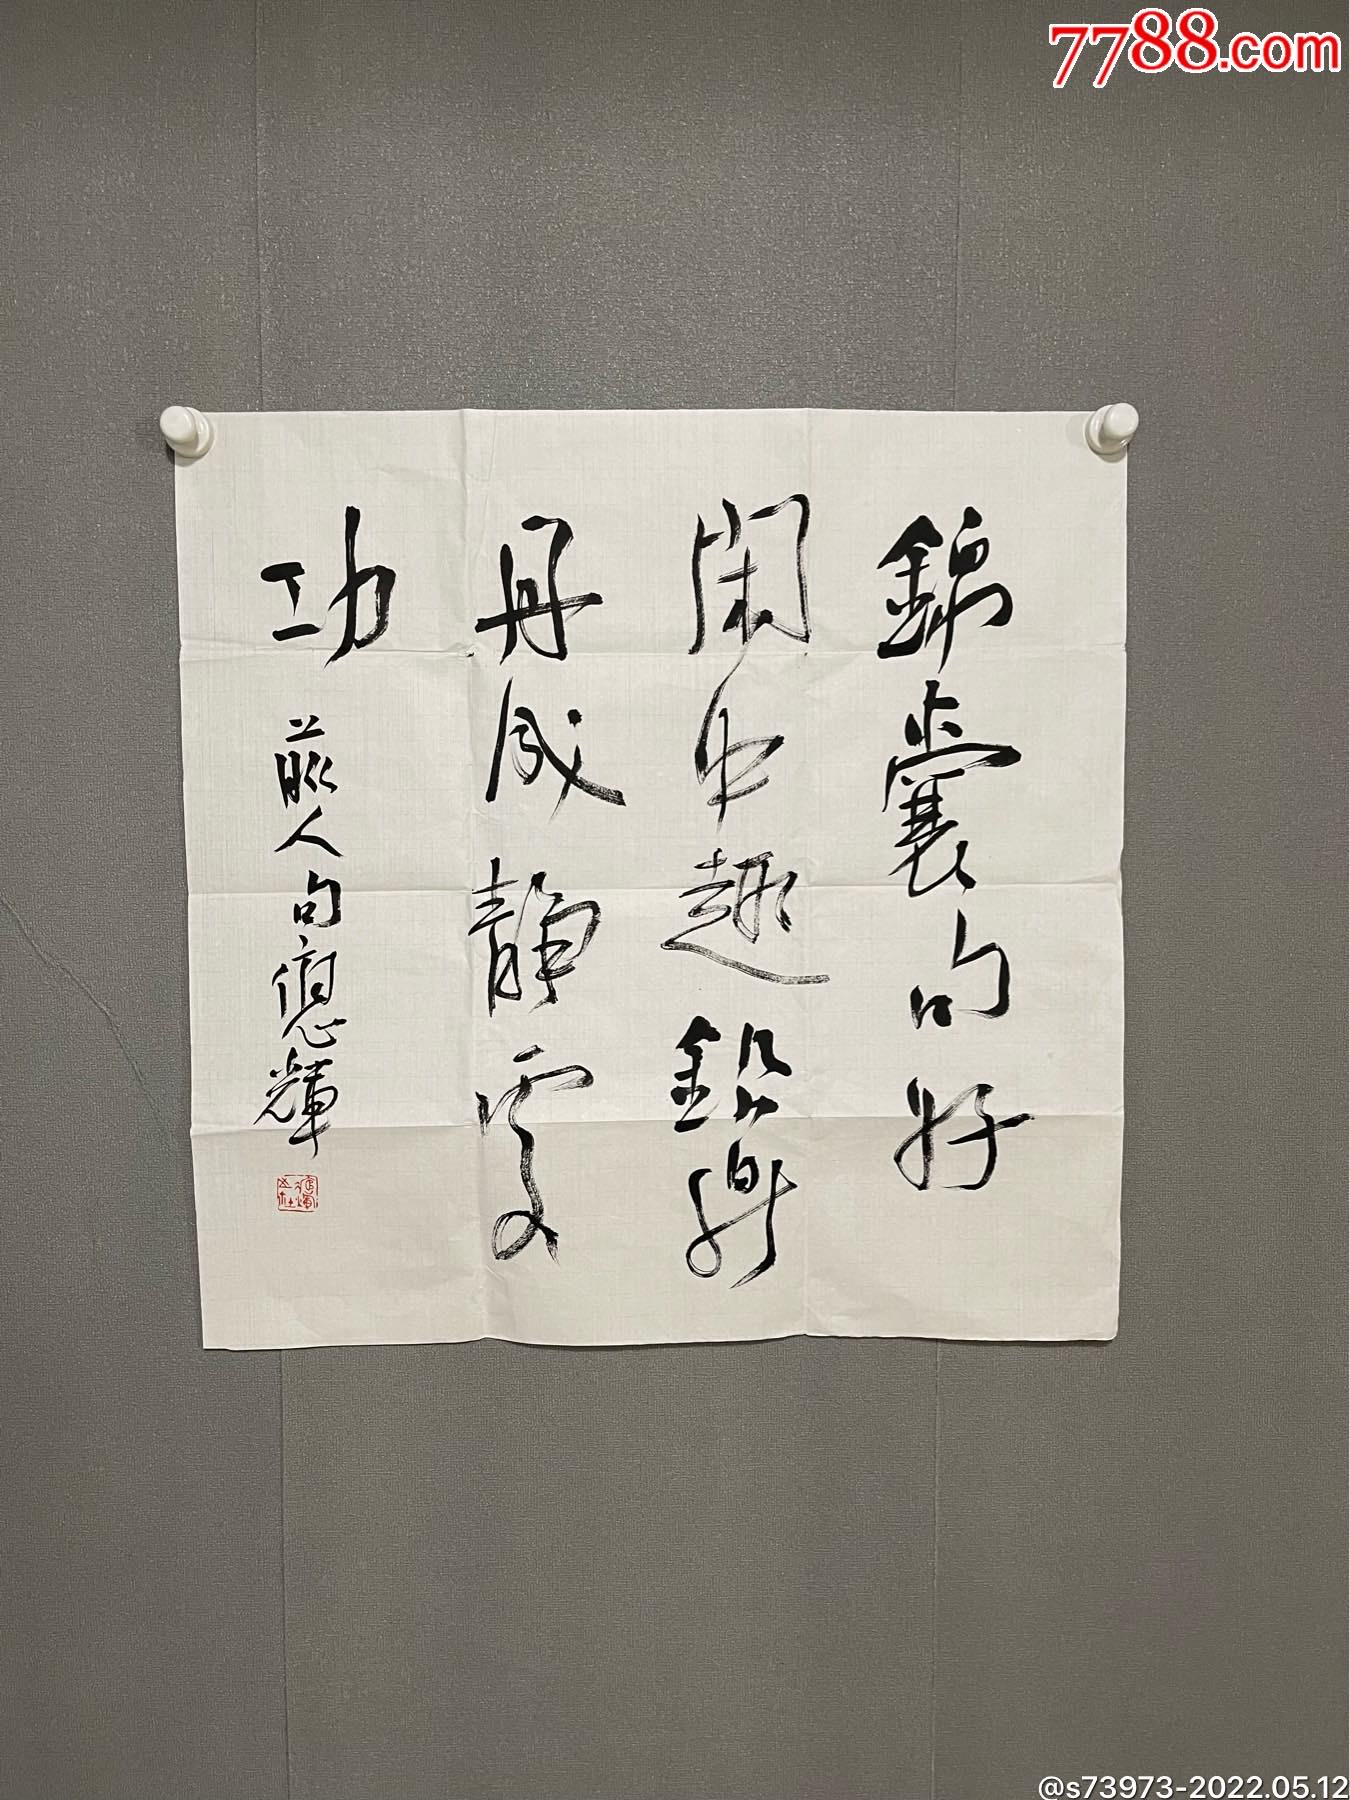 7788.com
錦囊句好
閑中趣鉛鼎
丹成靜處
功
人句德輝
@s73973-2022.05.12